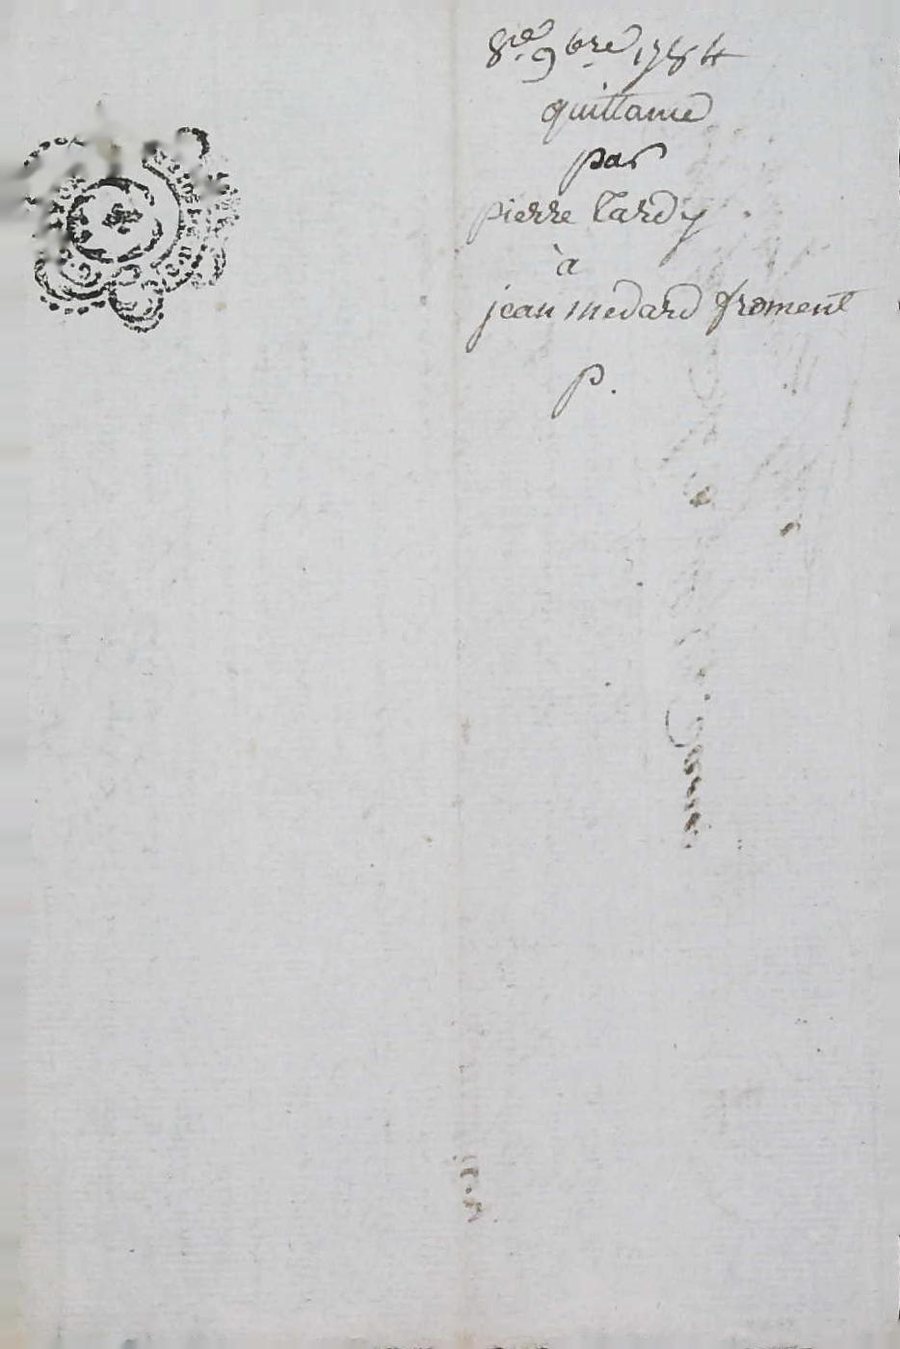 8e. 9bre. 1784
quittance
par
pierre Tardy
à
jean medard froment
p.